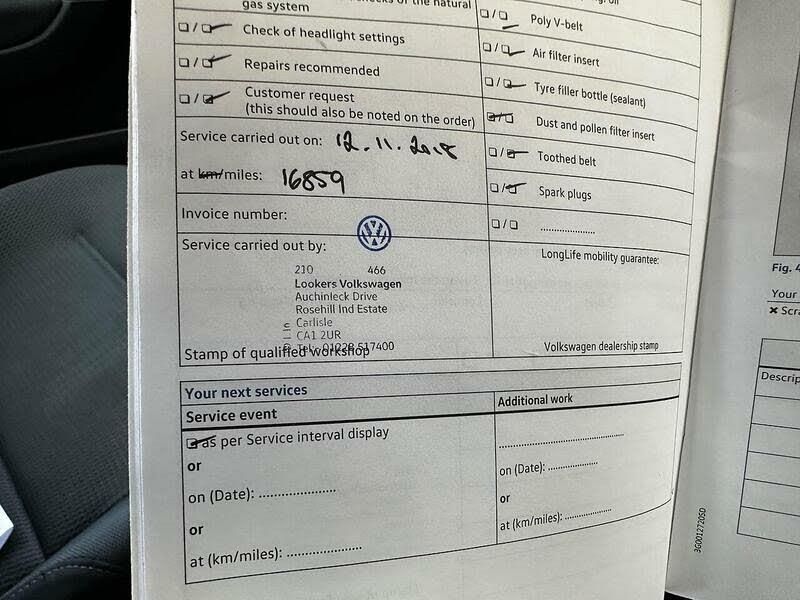 checks of the natural
gas system
Check of headlight settings
Repairs recommended
Customer request
(this should also be noted on the order)
Service carried out on: 12.11.2018
at km/miles: 16859
Invoice number:
Service carried out by:
210 466
Lookers Volkswagen
Auchinleck Drive
Rosehill Ind Estate
Carlisle
CA1 2UR
Tel: 01228 517400
Stamp of qualified workshop
Poly V-belt
Air filter insert
Tyre filler bottle (sealant)
Dust and pollen filter insert
Toothed belt
Spark plugs
....................
LongLife mobility guarantee:
Volkswagen dealership stamp
Your next services
Service event
as per Service interval display
or
on (Date): ....................
or
at (km/miles): ....................
Additional work
....................
on (Date): ....................
or
at (km/miles): ....................
3G0012720SD
Fig. 4
Your
Descrip